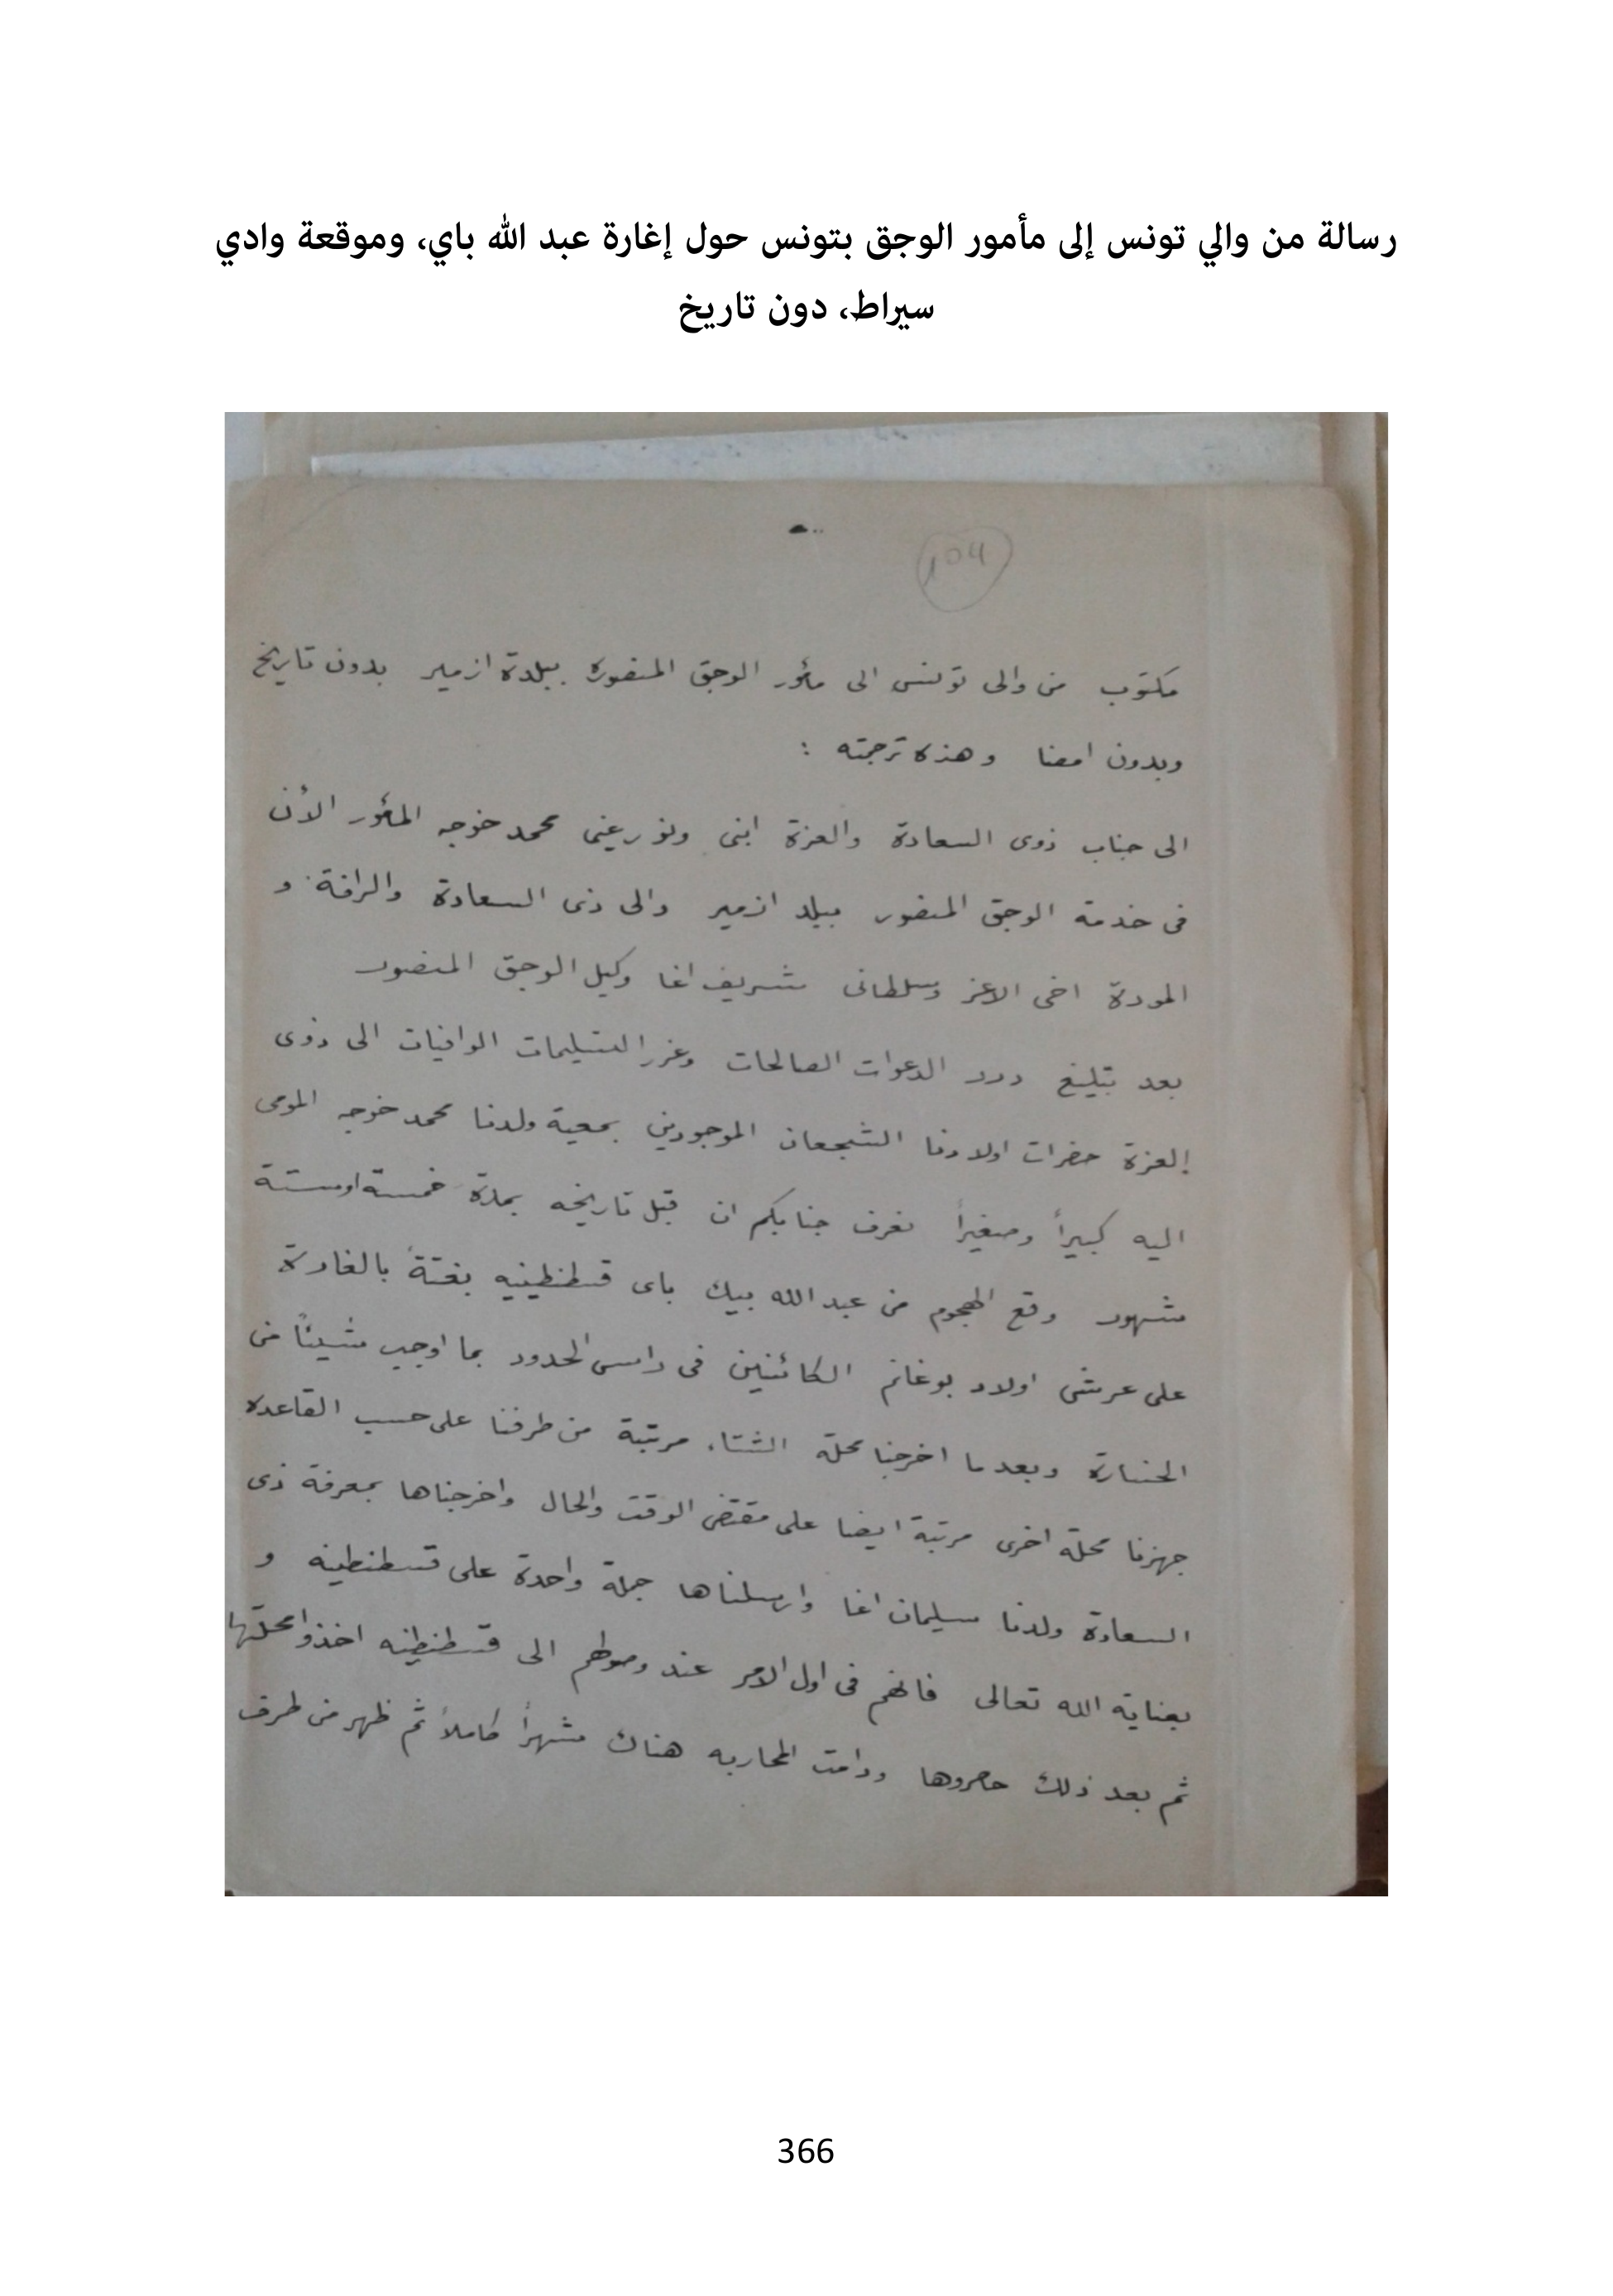 رسالة من والي تونس إلى مأمور الوجق بتونس حول إغارة عبد الله باي، وموقعة وادي
سيراط، دون تاريخ
104
مكتوب من والى تونس الى مأمور الوجق المنصوره ببلدة ازمير بدون تاريخ
وبدون امضا وهذه ترجمته :
الى جناب ذوى السعادة والعزة ابنى ونور عينى محمد خوجه المأمور الأن
فى خدمة الوجق المنصور ببلد ازمير والى ذى السعادة والرافة و
المودة اخى الاعز وسلطانى شريف اغا وكيل الوجق المنصور
بعد تبليغ درر الدعوات الصالحات وغرر التسليمات الوافيات الى ذوى
العزة حضرات اولادنا الشجعان الموجودين بمعية ولدنا محمد خوجه المومى
اليه كبيراً وصغيراً نعرف جنابكم ان قبل تاريخه بمدة خمسة اوستة
شهور وقع الهجوم من عبد الله بيك باى قسطنطينيه بغتةً بالغارة
على عرش اولاد بوغانم الكائنين فى راس الحدود بما اوجب شيئاً من
الخسارة وبعد ما اخرجنا محلة الشتاء مرتبة من طرفنا على حسب القاعده
جهزنا محلة اخرى مرتبة ايضا على مقتضى الوقت والحال واخرجناها بمعرفة ذى
السعادة ولدنا سليمان اغا وارسلناها جملة واحدة على قسطنطينه و
بعناية الله تعالى فانهم فى اول الامر عند وصولهم الى قسطنطينه اخذوا محلتها
ثم بعد ذلك حاصروها ودامت المحاربه هناك شهراً كاملاً ثم ظهر من طرف
366